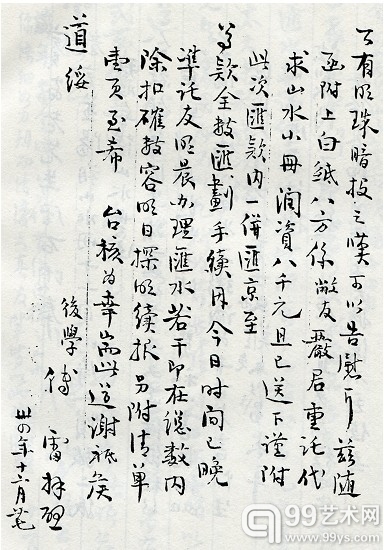 有明珠暗投之嘆可以告慰耳茲隨
函附上白紙八方係敝友嚴君重託代
求山水小冊潤資八千元且已送下謹附
此次匯款内一併匯京至
尊款全數匯劃手續因今日时间已晚
準託友明晨办理匯水若干即在總数内
除扣確数容明日探明續报另附清單
壹頁至希 台核为幸耑此道謝祗矦
道綏
後學傅 雷拜啓
卅四年
99艺术网
www.99ys.com